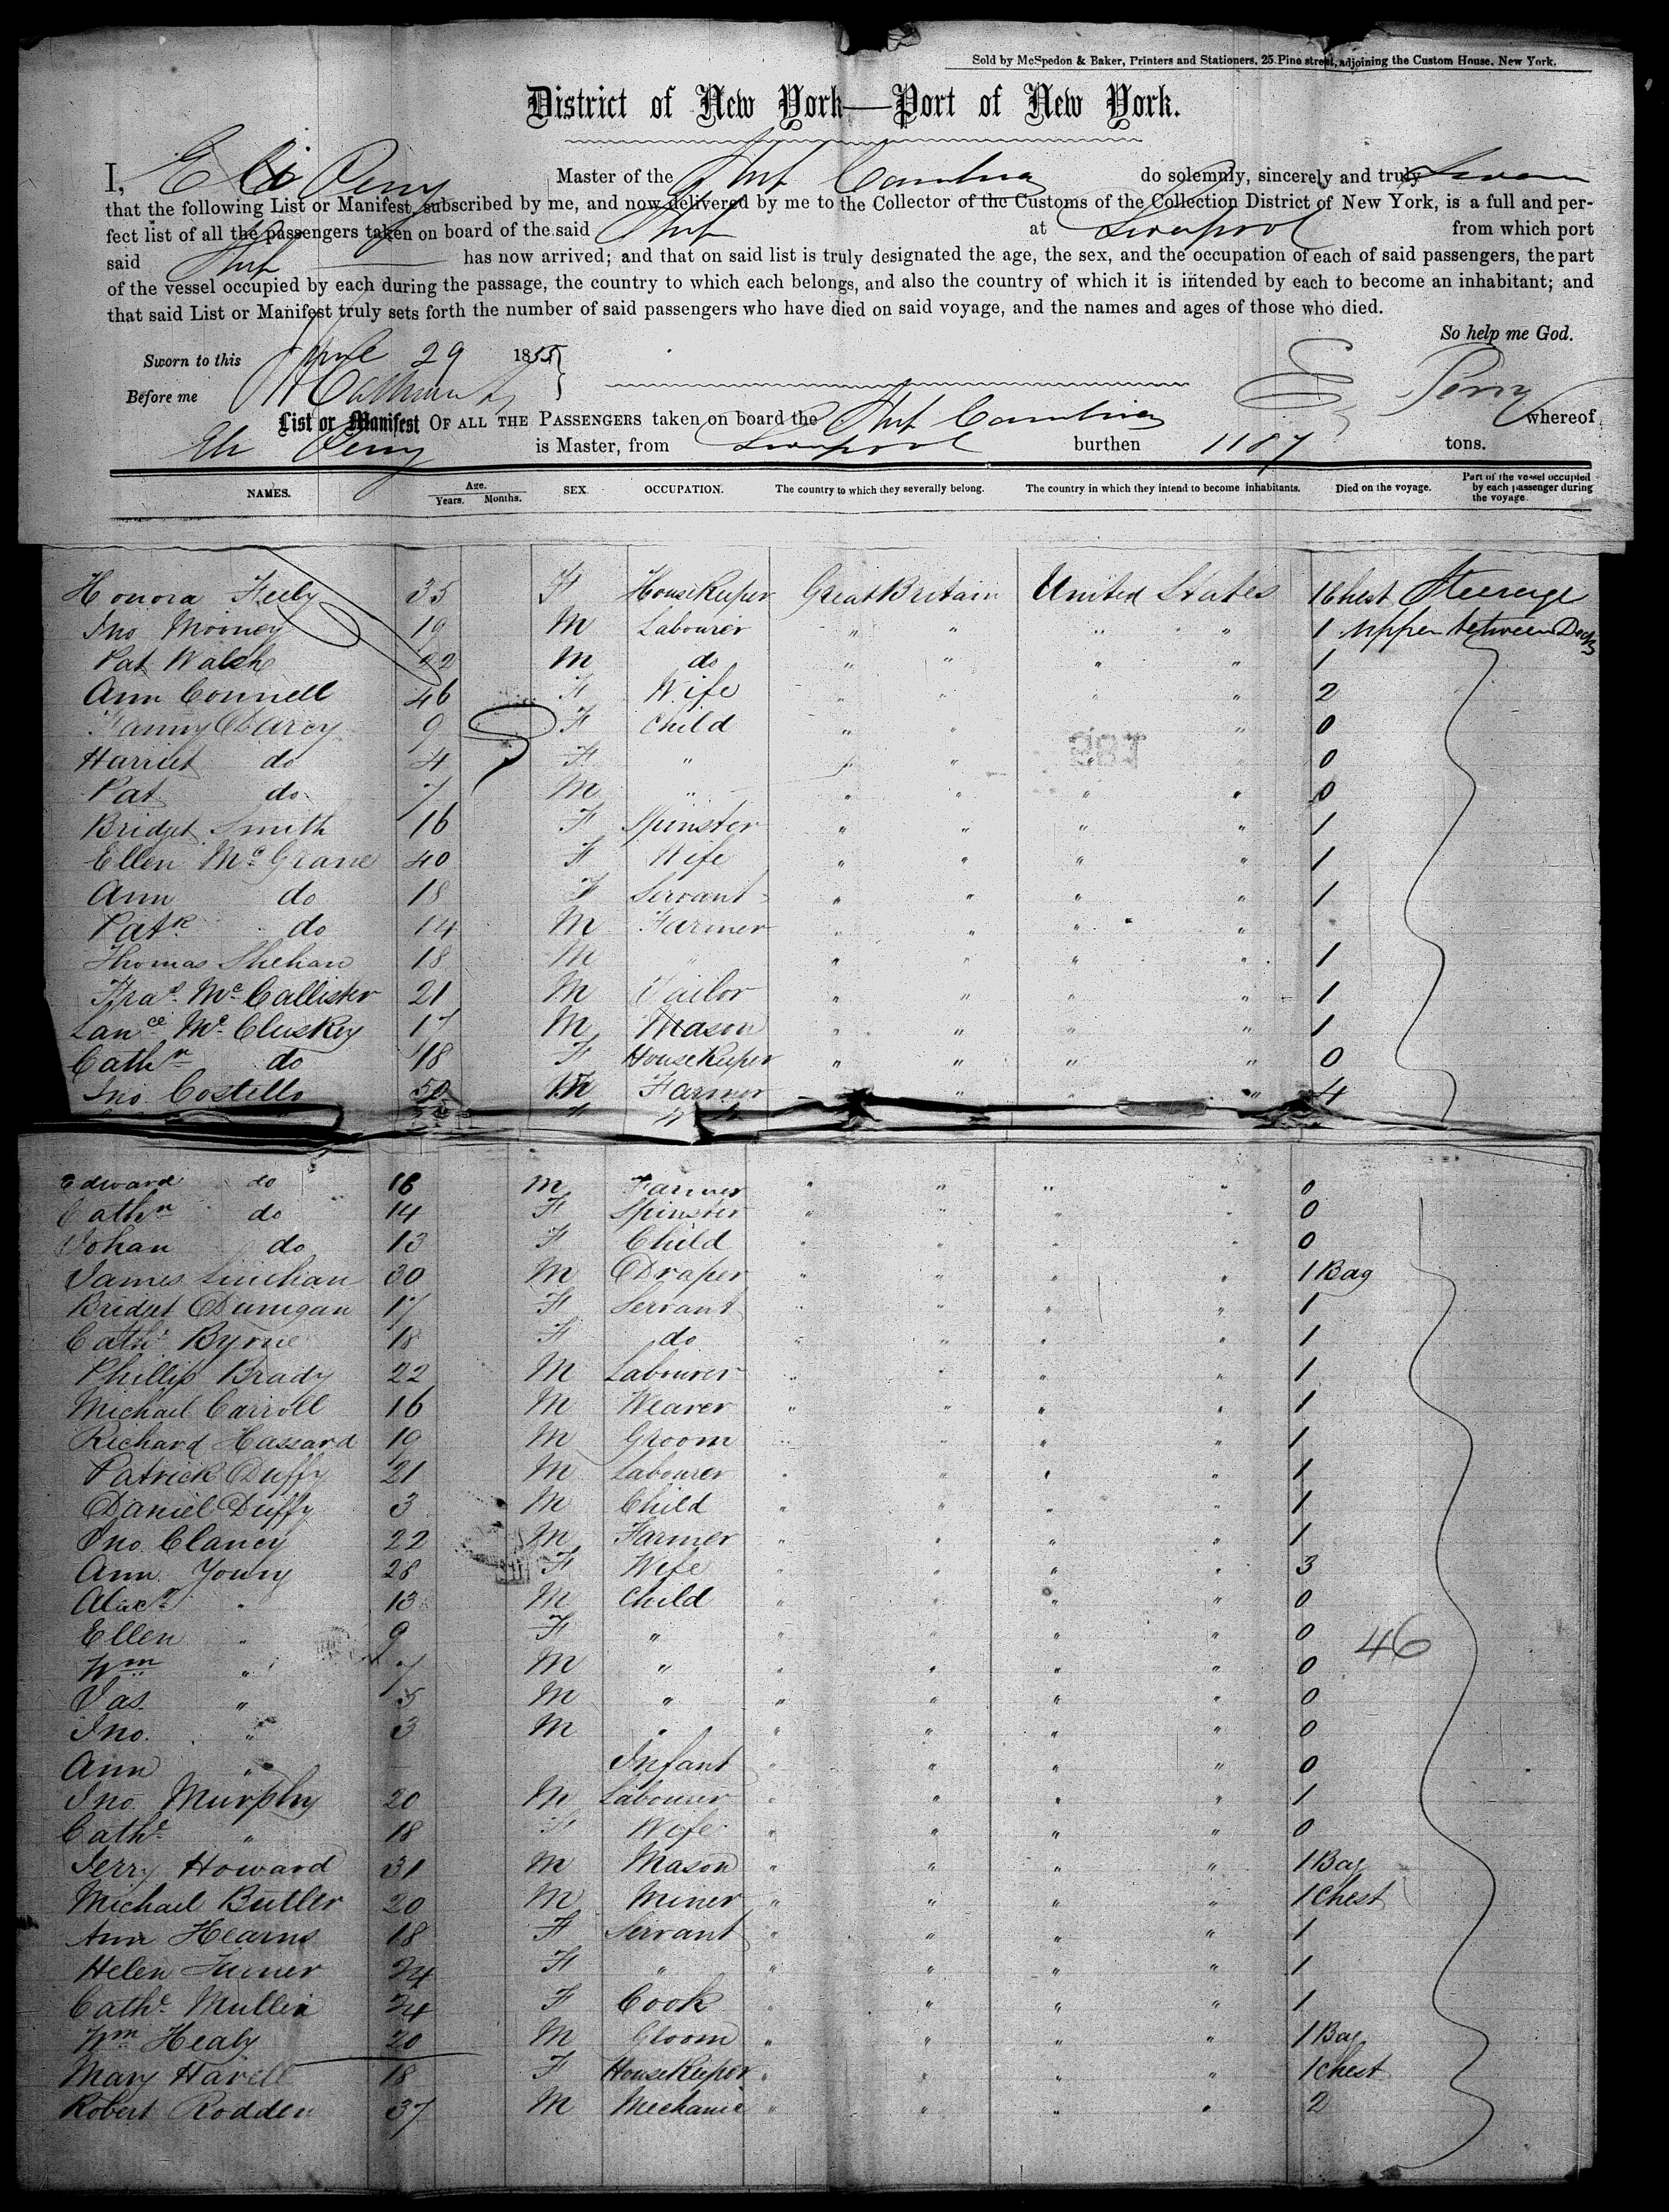 Sold by McSpedon & Baker, Printers and Stationers, 25 Pine street, adjoining the Custom House, New York.
District of New York—Port of New York.
I, Eli Perry Master of the Ship Cambria do solemnly, sincerely and truly Swear
that the following List or Manifest, subscribed by me, and now delivered by me to the Collector of the Customs of the Collection District of New York, is a full and per-
fect list of all the passengers taken on board of the said Ship at Liverpool from which port
said Ship has now arrived; and that on said list is truly designated the age, the sex, and the occupation of each of said passengers, the part
of the vessel occupied by each during the passage, the country to which each belongs, and also the country of which it is intended by each to become an inhabitant; and
that said List or Manifest truly sets forth the number of said passengers who have died on said voyage, and the names and ages of those who died.
So help me God.
Sworn to this April 29 1855
Before me E Perry
List or Manifest OF ALL THE PASSENGERS taken on board the Ship Cambria whereof
Eli Perry is Master, from Liverpool burthen 1187 tons.
NAMES. Age. Years. Months. SEX. OCCUPATION. The country to which they severally belong. The country in which they intend to become inhabitants. Died on the voyage. Part of the vessel occupied by each passenger during the voyage
Honora Feeby 35 F Housekeeper Great Britain United States 1 Chest Steerage
Jno Mooney 19 M Labourer " " " " 1 Upper between Decks
Pat Walsh 22 M do " " " " 1
Ann Connell 46 F Wife " " " " 2
Fanny Darcy 9 F Child " " " 0
Harriet do 4 F " " " " 0
Pat do 7 M " " " " " 0
Bridget Smith 16 F Spinster " " " " 1
Ellen McGrane 40 F Wife " " " " 1
Ann do 18 F Servant " " " " 1
Patk do 14 M Farmer " " " "
Thomas Shehan 18 M " " " " " 1
Fras McCallister 21 M Tailor " " " " 1
Lance McCluskey 17 M Mason " " " " 1
Cathn do 18 F Housekeeper " " " " 0
Jno Costello 50 M Farmer " " " 4
Edward do 16 M Farmer " " " " 0
Cathn do 14 F Spinster " " " " 0
Johan do 13 F Child " " " " 0
James Linehan 30 M Draper " " " " 1 Bag
Bridget Dunigan 17 F Servant " " " " 1
Cathe Byrne 18 F do " " " " 1
Phillip Brady 22 M Labourer " " " " 1
Michael Carroll 16 M Weaver " " " " 1
Richard Hassard 19 M Groom " " " " 1
Patrick Duffy 21 M Labourer " " " " 1
Daniel Duffy 3 M Child " " " " 1
Jno Clancy 22 M Farmer " " " " 1
Ann Young 28 F Wife " " " " 3
Alexr " 13 M Child " " " " 0
Ellen " 9 F " " " " " 0 46
Wm " 7 M " " " " " 0
Jas. " 5 M " " " " " 0
Jno. " 3 M " " " " " 0
Ann " Infant " " " " 0
Jno Murphy 20 M Labourer " " " " 1
Cathe " 18 F Wife " " " " 0
Jerry Howard 31 M Mason " " " " 1 Bag
Michael Butler 20 M Miner " " " " 1 Chest
Ann Hearns 18 F Servant " " " " 1
Helen 24 F " " " " " 1
Cathe Mullin 24 F Cook " " " " 1
Wm Healy 20 M Groom " " " " 1 Bag
Mary Havell 18 F Housekeeper " " " " 1 Chest
Robert Rodden 37 M Mechanic " " " " 2